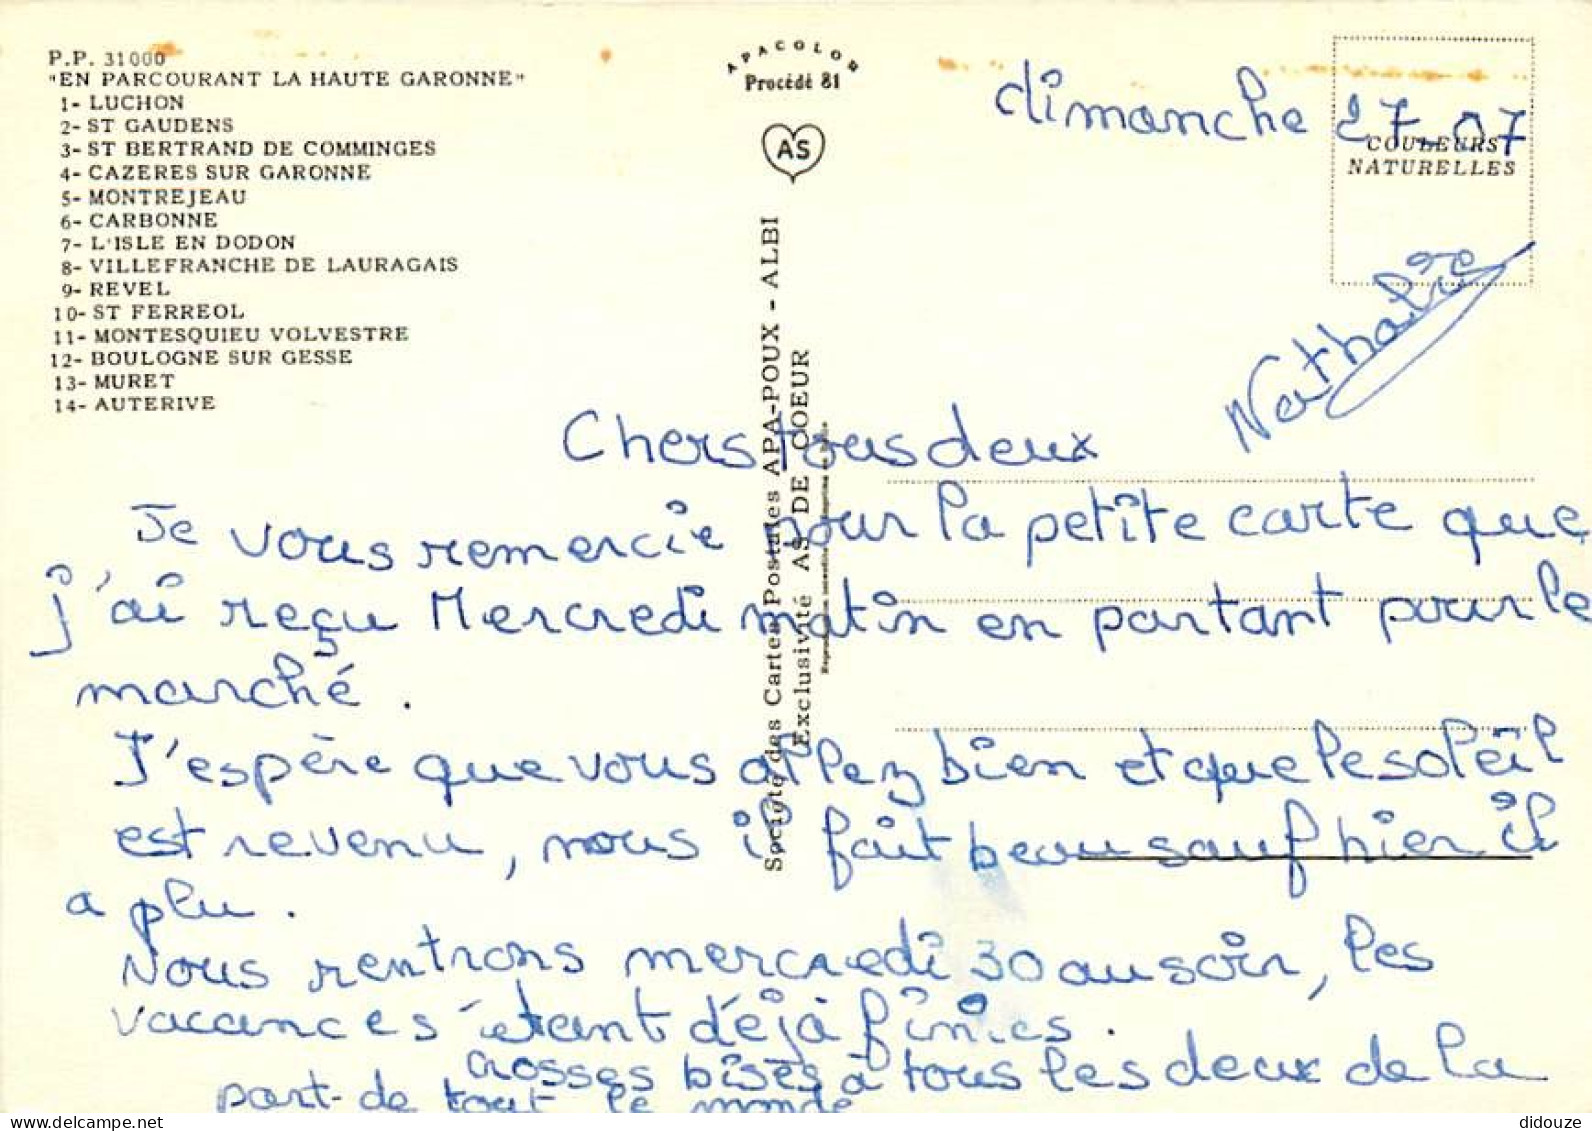 P.P. 31000
"EN PARCOURANT LA HAUTE GARONNE"
1- LUCHON
2- ST GAUDENS
3- ST BERTRAND DE COMMINGES
4- CAZERES SUR GARONNE
5- MONTREJEAU
6- CARBONNE
7- L'ISLE EN DODON
8- VILLEFRANCHE DE LAURAGAIS
9- REVEL
10- ST FERREOL
11- MONTESQUIEU VOLVESTRE
12- BOULOGNE SUR GESSE
13- MURET
14- AUTERIVE
APACOLOR
Procédé 81
AS
Société des Cartes Postales APA-POUX - ALBI
Exclusivité AS DE COEUR
COULEURS
NATURELLES
dimanche 27-07
Nathalie
Chers tous deux
Je vous remercie pour la petite carte que
j'ai reçu Mercredi matin en partant pour le
marché.
J'espère que vous allez bien et que le soleil
est revenu, nous il fait beau sauf hier il
a plu.
Nous rentrons mercredi 30 au soir, les
vacances étant déjà finies.
Grosses bises à tous les deux de la
part de tout le monde
https://www.delcampe.net
didouze